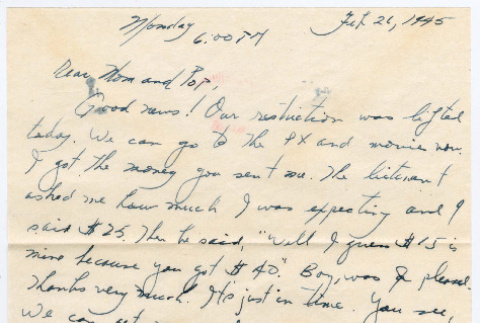 Monday Feb 26, 1945
6:00 PM
Dear Mom and Pop,
Good news! Our restriction was lifted
today. We can go to the PX and movies now.
I got the money you sent me. The lieutenant
asked me how much I was expecting and I
said $25. Then he said, "Well I guess $15 is
mine because you got $40". Boy, was I pleased.
Thanks very much. It's just in time. You see,
We can get